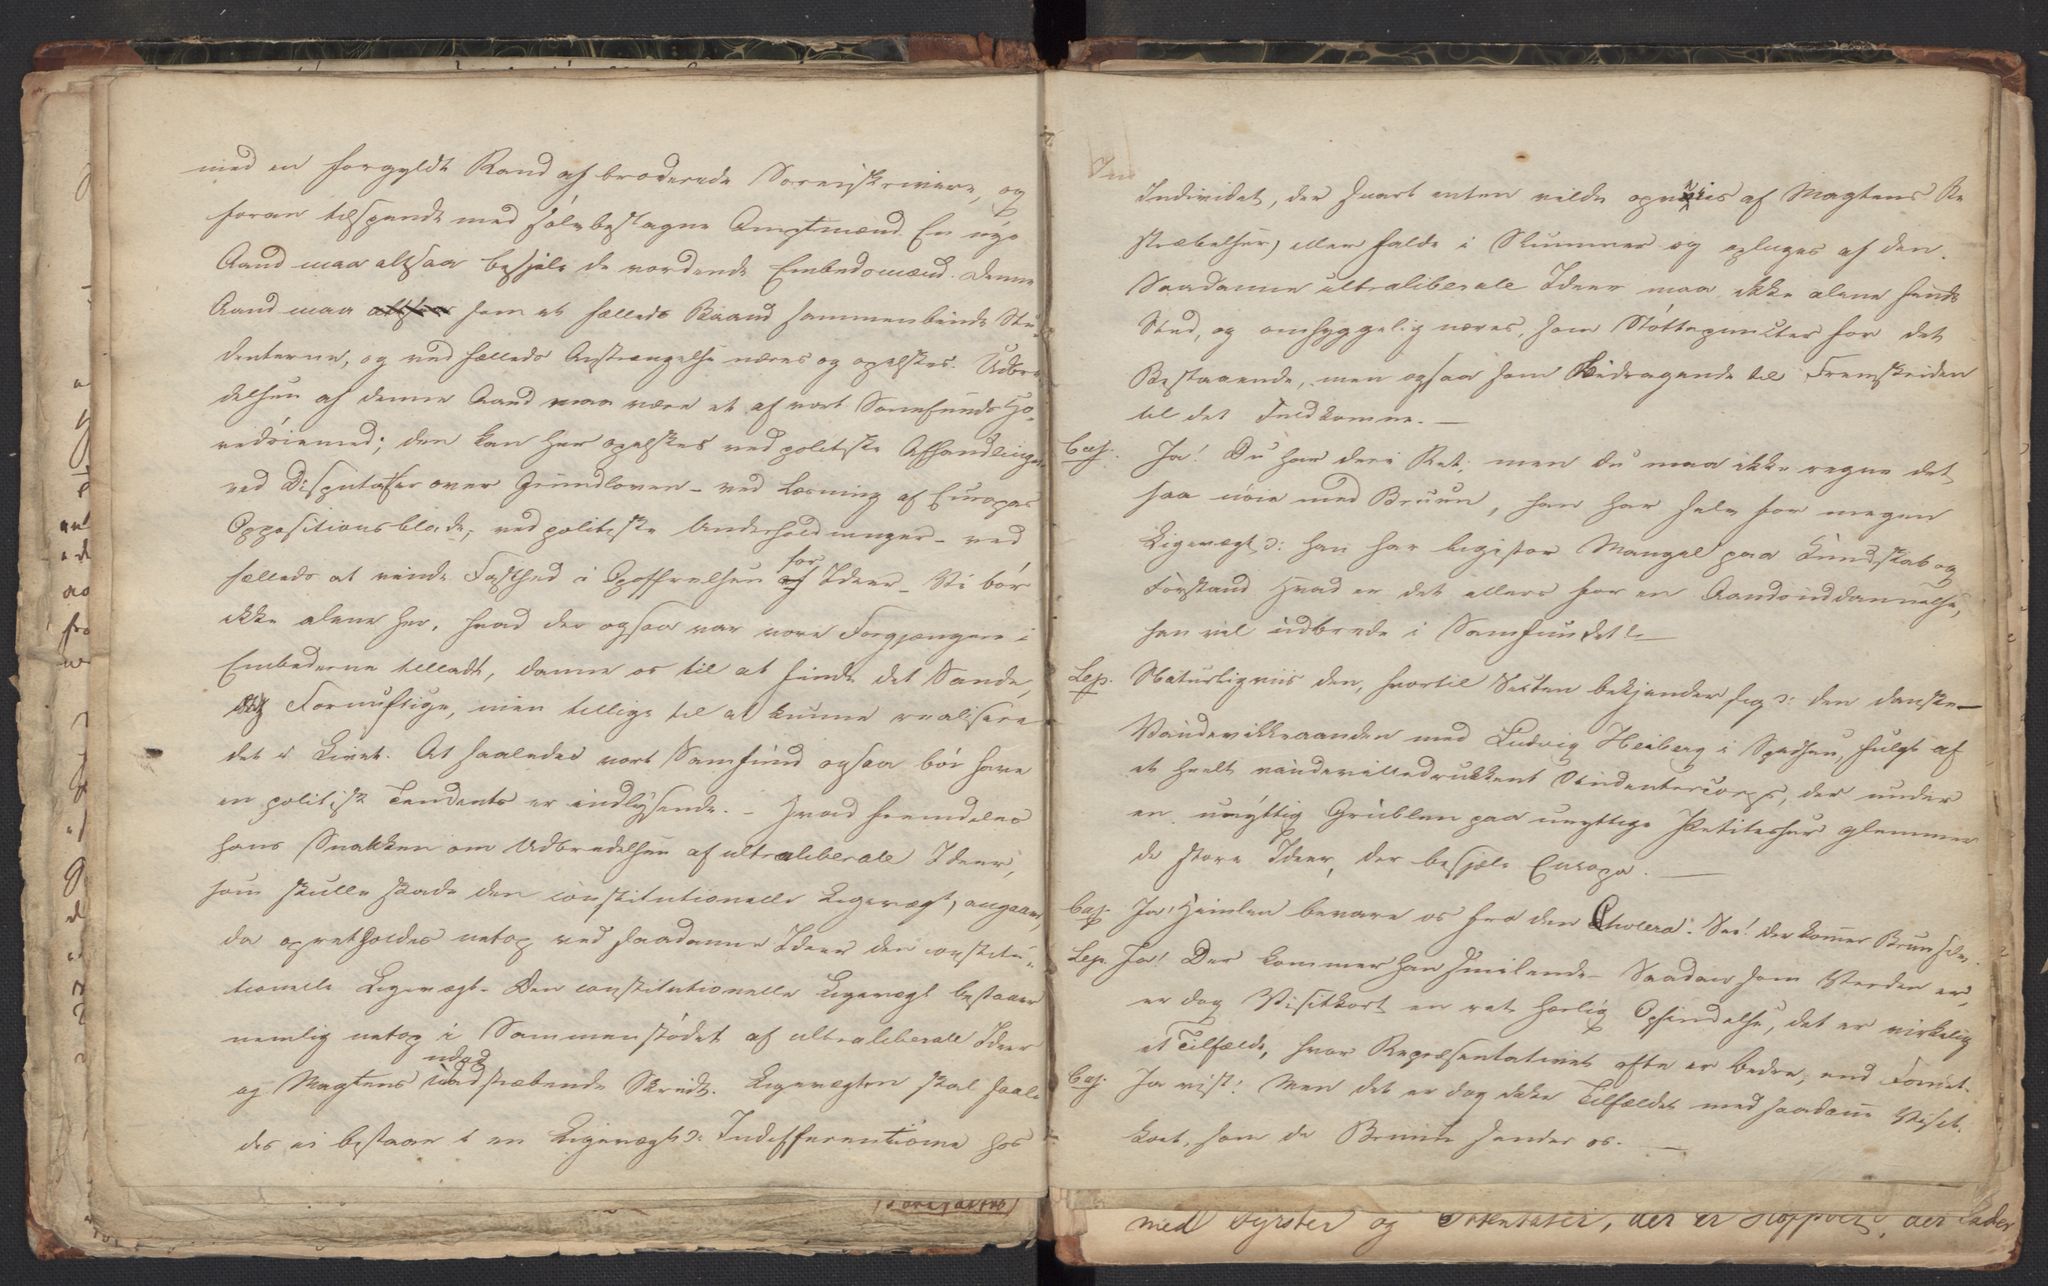 med en forgyldt Rand af broderede Sorenskrivere, og
foran tilspændt med sølvbeslagne Amtmænd. En nye
Aand maa altsaa besjæle de vordende Embedsmænd. Denne
Aand maa altsaa som et fælleds Baand sammenbinde Stu
denterne, og ved fælleds Anstrængelse næres og opelskes. Udbre
delsen af denne Aand maa være et af vort Samfunds Ho-
vedøiemed; den kan her opelskes ved politiske Afhandlinger
ved Disputatser over Grundloven – ved Læsning af Europas
Oppositionsblade, ved politiske Underholdninger – ved
fælleds at vinde Fasthed i Opoffrelsen for Ideer – Vi bør
ikke alene her, hvad der ogsaa var vore Forgjængere i
Embederne tilladt, danne os til at finde det Sande,
og Fornuftige, men tillige til at kunne realisere
det i Livet. At saaledes vort Samfund ogsaa bør have
en politisk Tendents er indlysende. – Hvad fremdeles
hans Snakken om Udbredelsen af ultraliberale Ideer,
som skulle skade den constitutionelle Ligevægt, angaaer,
da opretholdes netop ved saadanne Ideer den constitu-
tionelle Ligevægt. Den constitutionelle Ligevægt bestaaer
nemlig netop i Sammenstødet af ultraliberale Ideer
og Magtens indadstræbende Skridt. Ligevægten skal saale
des ei bestaae i en Ligevægt ɔ: Indifferentisme hos
Individet, der snart enten vilde opveies af Magtens Be
stræbelser, eller falde i Slummer og opluges af den.
Saadanne ultraliberale Ideer maa ikke alene finde
Sted, og omhyggelig næres, som Støttepuncter for det
Bestaaende, men ogsaa som Bidragende til Fremskriden
til det Fuldkomne. —
Caj. Ja! Du har deri Ret; men du maa ikke regne det
saa nøie med Bruun, han har selv for megen
Ligevægt ɔ: han har ligestor Mangel paa Kundskab og
Forstand Hvad er det ellers for en Aandsuddannelse,
han vil udbrede i Samfundet? —
Lep. Naturligviis den, hvortil Secten bekjender sig ɔ: den danske
Vaudevilleaanden med Ludvig Heiberg i Spidsen, fulgt af
et heelt vaudevilledrukkent Studentercorps, der under
en unyttig Grublen paa unyttige Petitesser glemmer
de store Ideer, der besjæle Europa. —
Caj. Ja! Himlen bevare os fra den Cholera! See! der kommer Bruun selv.
Lep. Ja! Der kommer han smilende – Saadan som Verden er,
er dog Visitkort en ret herlig Opfindelse, det er virkelig
et Tilfælde, hvor Repræsentativet ofte er bedre, end
Caj. Ja vist! Men det er dog ikke Tilfældet med saadanne Visit-
kort, som de sender os. —
med og der er der